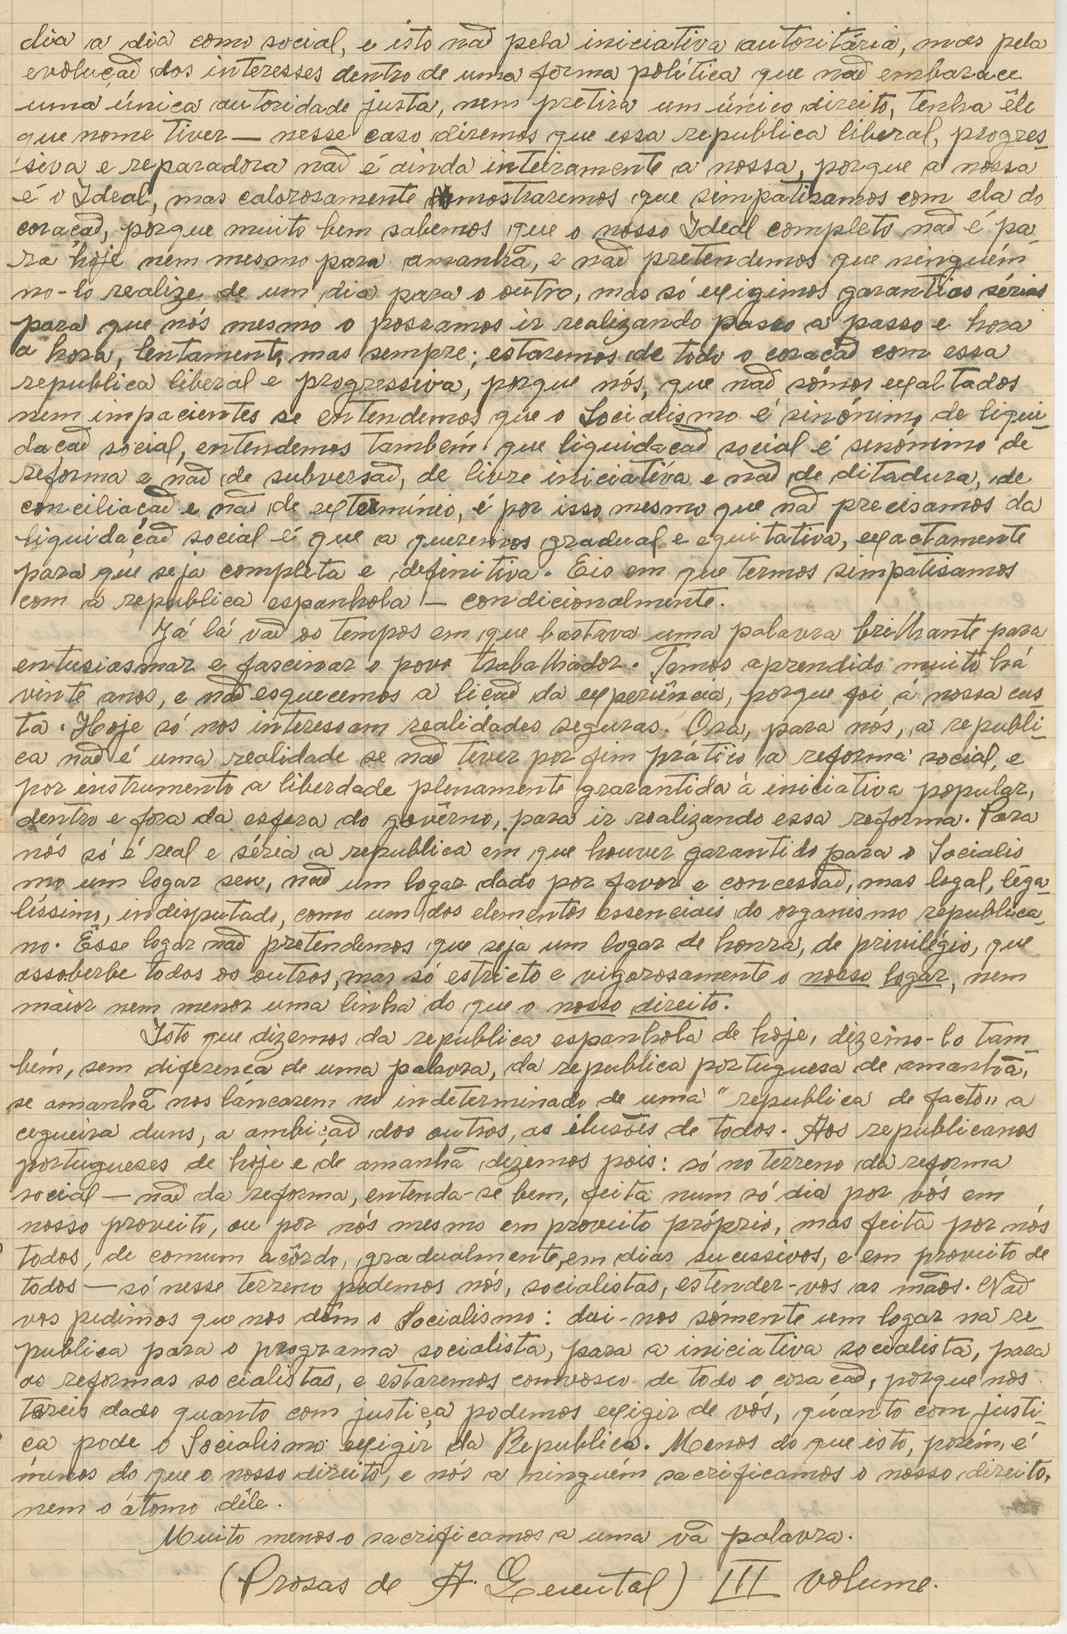 dia a dia como social, e isto não pela iniciativa autoritária, mas pela
evolução dos interesses dentro de uma forma política que não embarace
uma única autoridade justa, nem pretira um único direito, tenha êle
que nome tiver — nesse caso diremos que essa republica liberal, progres-
siva e reparadora não é ainda inteiramente a nossa, porque a nossa
é o Ideal, mas calorosamente mostraremos que simpatisamos com ela do
coração, porque muito bem sabemos que o nosso Ideal completo não é pa-
ra hoje nem mesmo para amanhã, e não pretendemos que ninguém
no-lo realize de um dia para o outro, mas só exigimos garantias sérias
para que nós mesmo o possamos ir realizando passo a passo e hora
a hora, lentamente, mas sempre; estaremos de todo o coração com essa
republica liberal e progressiva, porque nós, que não sômos exaltados
nem impacientes se entendemos que o Socialismo é sinónimo de liqui-
dação social, entendemos também que liquidação social é sinónimo de
reforma e não de subversão, de livre iniciativa e não de ditadura, de
conciliação e não de extermínio, é por isso mesmo que não precisamos da
liquidação social é que a queremos gradual e equitativa, exactamente
para que seja completa e definitiva. Eis em que termos simpatisamos
com a republica espanhola — condicionalmente.
Já lá vão os tempos em que bastava uma palavra brilhante para
entusiasmar e fascinar o povo trabalhador. Temos aprendido muito há
vinte anos, e não esquecemos a lição da experiência, porque foi á nossa cus-
ta. Hoje só nos interessam realidades seguras. Ora, para nós, a republi-
ca não é uma realidade se não tiver por fim prático a reforma social, e
por instrumento a liberdade plenamente grarantida á iniciativa popular,
dentro e fora da esfera do govêrno, para ir realizando essa reforma. Para
nós só é real e séria a republica em que houver garantido para o Socialis
mo um logar seu, não um logar dado por favor e concessão, mas legal, lega-
líssimo, indisputado, como um dos elementos essenciais do organismo republica-
no. Êsse logar não pretendemos que seja um logar de honra, de privilégio, que
assoberbe todos os outros, mas só estricto e vigorosamente o nosso logar, nem
maior nem menor uma linha do que o nosso direito.
Isto que dizemos da republica espanhola de hoje, dizêmo-lo tam-
bém, sem diferença de uma palavra, da republica portuguesa de amanhã,
se amanhã nos lançarem no indeterminado de uma "republica de facto" a
cegueira duns, a ambição dos outros, as ilusões de todos. Aos republicanos
portugueses de hoje e de amanhã dizemos pois: só no terreno da reforma
social — não da reforma, entenda-se bem, feita num só dia por vós em
nosso proveito, ou por nós mesmo em proveito próprio, mas feita por nós
todos, de comum acôrdo, gradualmente, em dias sucessivos, e em proveito de
todos — só nesse terreno podemos nós, socialistas, estender-vos as mãos. Não
vos pedimos que nos dêm o Socialismo: dai-nos sómente um logar na re-
publica para o programa socialista, para a iniciativa socialista, para
as reformas socialistas, e estaremos convosco de todo o coração, porque nos
tereis dado quanto com justiça podemos exigir de vós, quanto com justi-
ça pode o Socialismo exigir da Republica. Menos do que isto, porém, é
menos do que o nosso direito, e nós a ninguém sacrificamos o nosso direito,
nem o átomo dêle.
Muito menos o sacrificamos a uma vã palavra.
(Prosas de A. Quental) III volume.